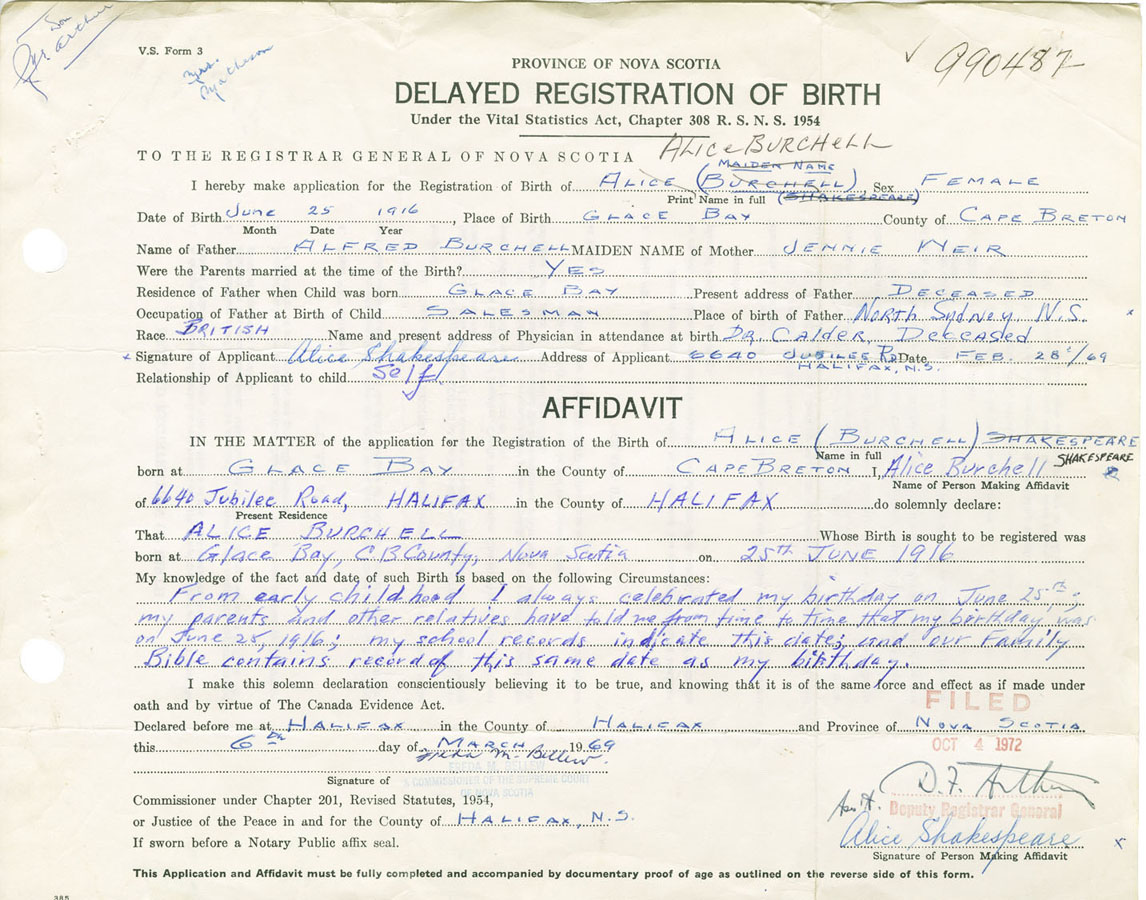 Mr Arthur
V.S. Form 3
Mrs. Matheson
990487
PROVINCE OF NOVA SCOTIA
DELAYED REGISTRATION OF BIRTH
Under the Vital Statistics Act, Chapter 308 R. S. N. S. 1954
TO THE REGISTRAR GENERAL OF NOVA SCOTIA ALICE BURCHELL
MAIDEN NAME
I hereby make application for the Registration of Birth of ALICE (BURCHELL) Sex FEMALE
Print Name in full (SHAKESPEARE)
Date of Birth JUNE 25 1916, Place of Birth GLACE BAY County of CAPE BRETON
Month Date Year
Name of Father ALFRED BURCHELL MAIDEN NAME of Mother JENNIE WEIR
Were the Parents married at the time of the Birth? YES
Residence of Father when Child was born GLACE BAY Present address of Father DECEASED
Occupation of Father at Birth of Child SALESMAN Place of birth of Father North Sydney N.S. x
Race BRITISH Name and present address of Physician in attendance at birth DR. CALDER, DECEASED
x Signature of Applicant Alice Shakespeare Address of Applicant 6640 JUBILEE RD Date FEB. 28th/69
HALIFAX, N.S.
Relationship of Applicant to child Self
AFFIDAVIT
IN THE MATTER of the application for the Registration of the Birth of ALICE (BURCHELL) SHAKESPEARE
Name in full
born at GLACE BAY in the County of CAPE BRETON I, Alice Burchell SHAKESPEARE
Name of Person Making Affidavit
of 6640 Jubilee Road, HALIFAX in the County of HALIFAX do solemnly declare:
Present Residence
That ALICE BURCHELL Whose Birth is sought to be registered was
born at Glace Bay, C B County, Nova Scotia on 25th JUNE 1916
My knowledge of the fact and date of such Birth is based on the following Circumstances:
From early childhood I always celebrated my birthday on June 25th;
my parents and other relatives have told me from time to time that my birthday was
on June 25, 1916; my school records indicate this date; and our Family
Bible contains record of this same date as my birthday.
I make this solemn declaration conscientiously believing it to be true, and knowing that it is of the same force and effect as if made under
oath and by virtue of The Canada Evidence Act.
FILED
Declared before me at HALIFAX in the County of HALIFAX and Province of NOVA SCOTIA
this 6th day of MARCH 1969
OCT 4 1972
Freda M. Bellew
FREDA M. BELLEW
Signature of A COMMISSIONER OF THE SUPREME COURT
OF NOVA SCOTIA
Commissioner under Chapter 201, Revised Statutes, 1954,
D.F. Arthur
Deputy Registrar General
or Justice of the Peace in and for the County of HALIFAX, N.S.
Alice Shakespeare x
If sworn before a Notary Public affix seal.
Signature of Person Making Affidavit
This Application and Affidavit must be fully completed and accompanied by documentary proof of age as outlined on the reverse side of this form.
385